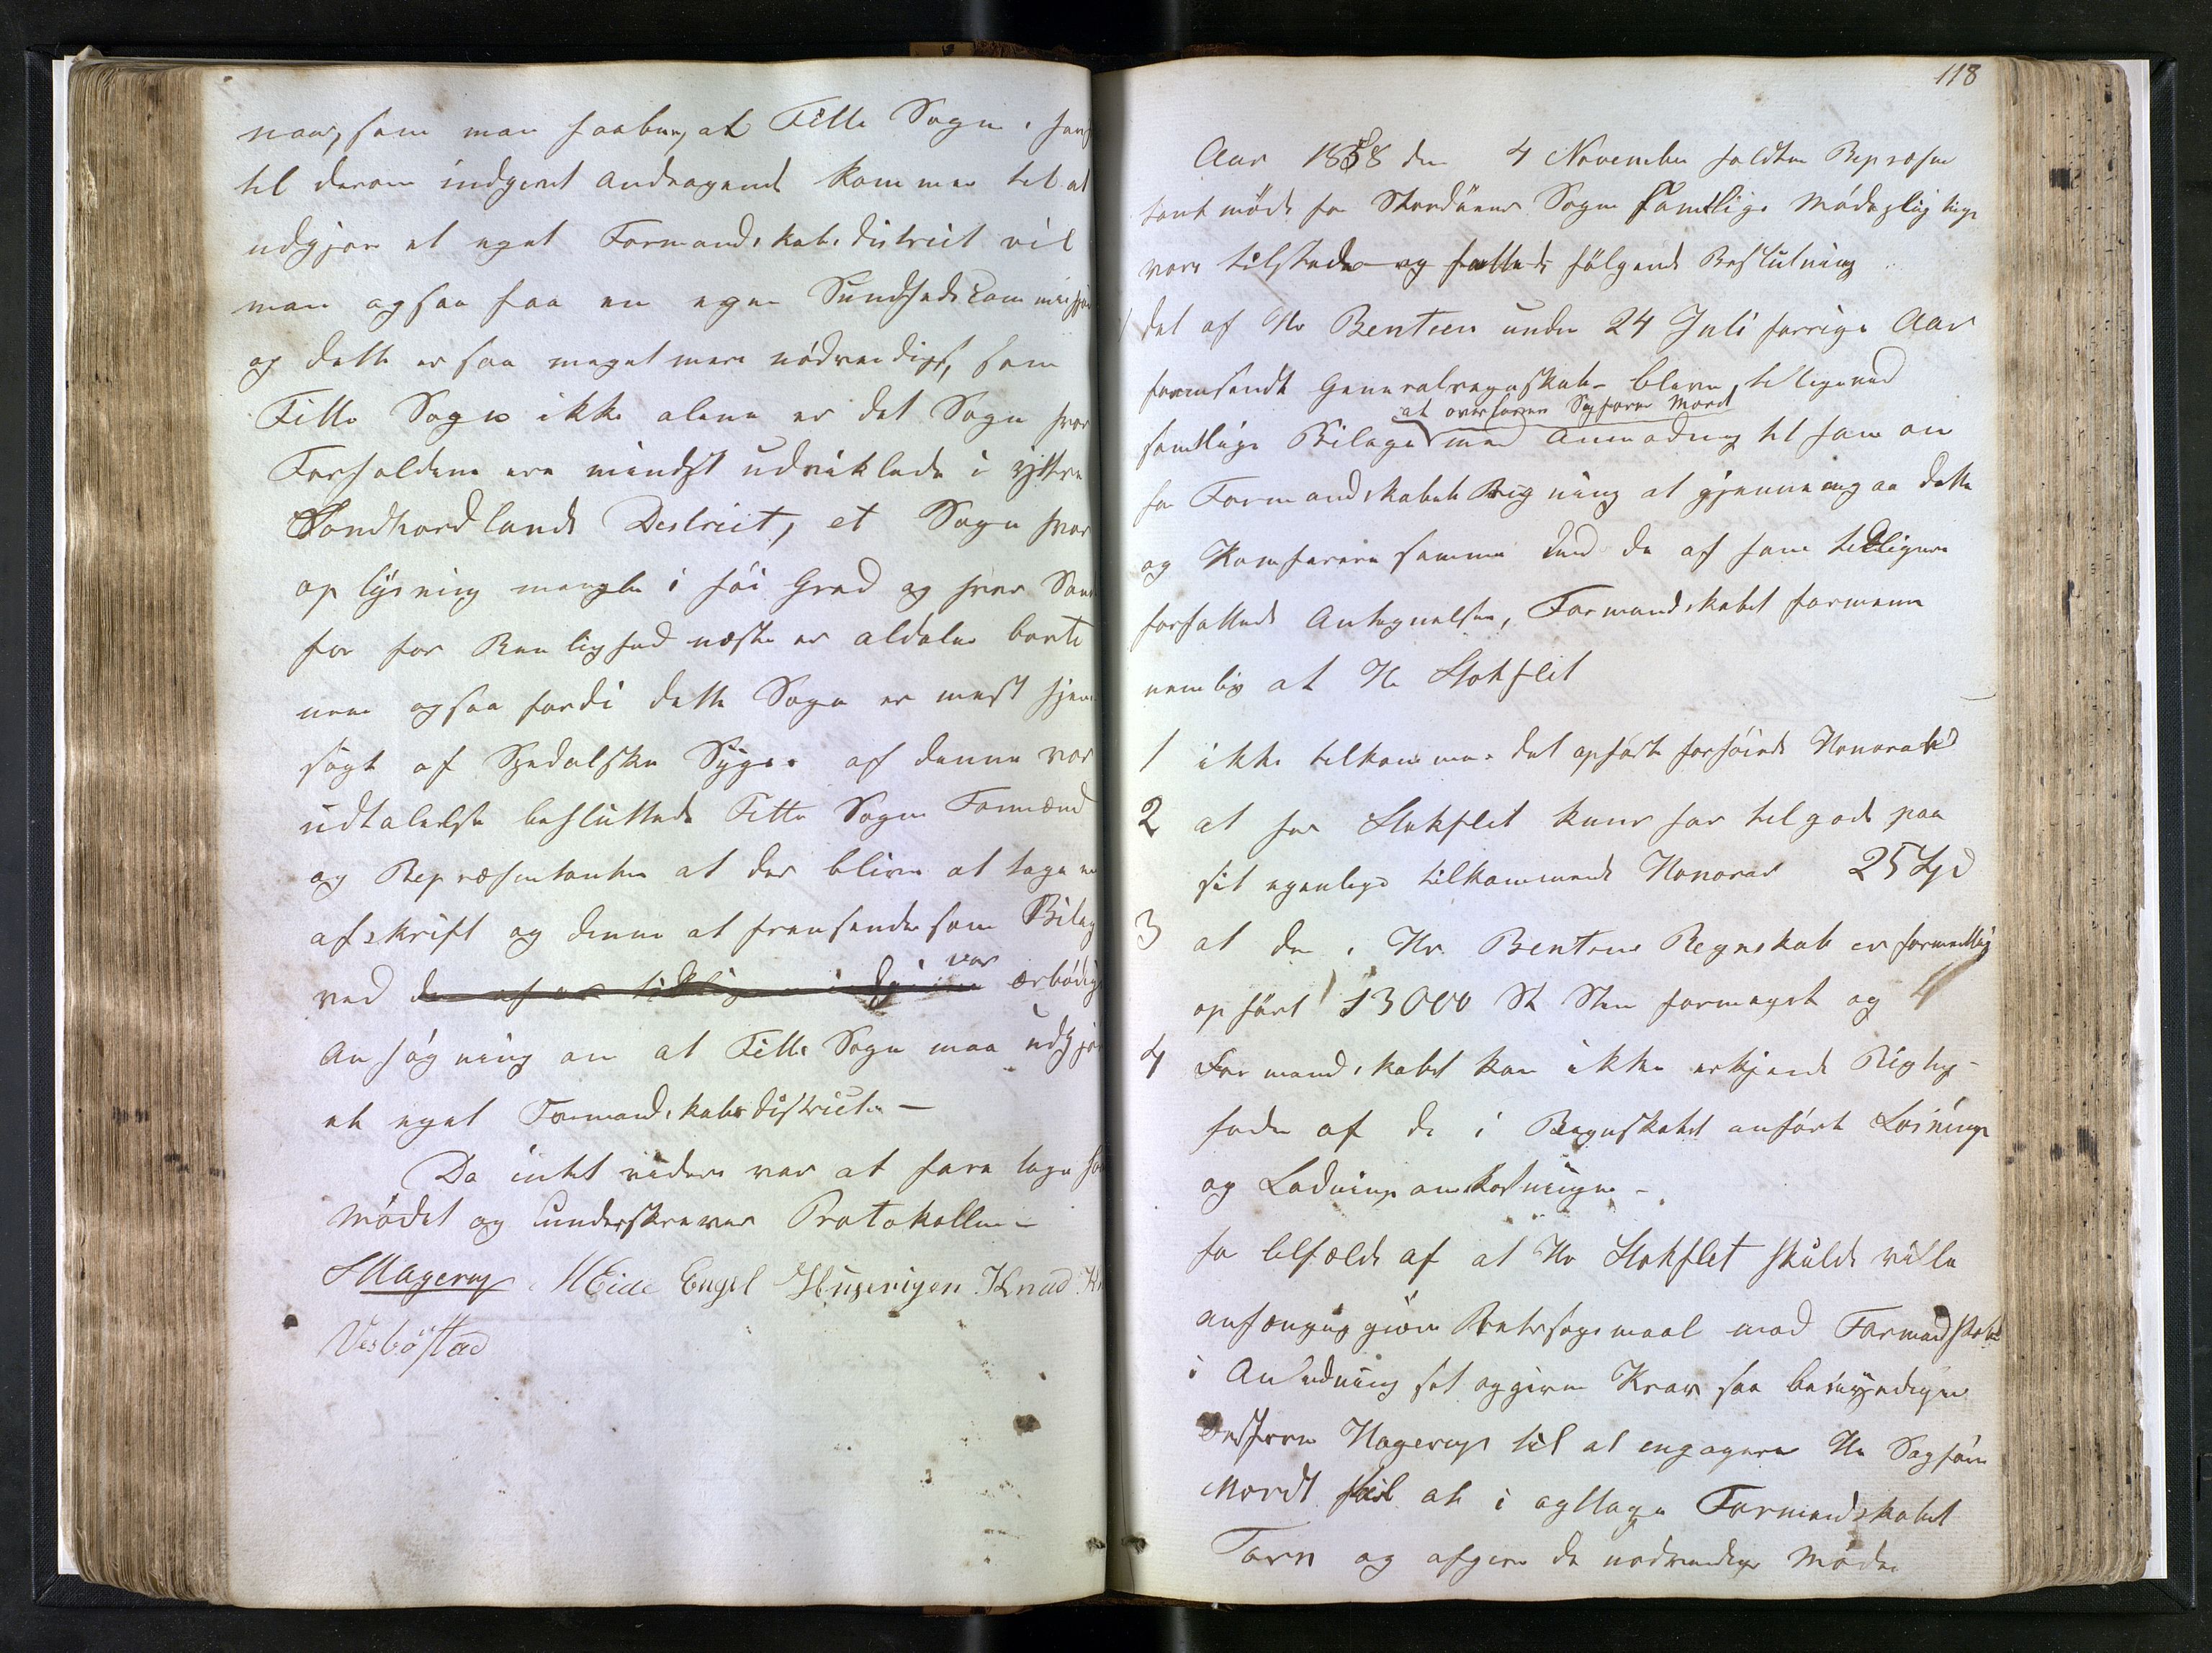 naar, som man haaber, at Fitte Sogn, ifølge
til derom indgivet Andragende kommer til at
udgjøre et eget Formandskabsdistrict vil
man ogsaa faa en egen Sundhedscommission
og dette er saa meget mere nødvendigt, som
Fitte Sogn ikke alene er det Sogn hvor
Forholdene ere mindst udviklede i ytre
Søndhordlands District, et Sogn hvor
oplysning mangler i høi Grad og hvor Sand
for for Reenlighed næsten er aldeles borte
men ogsaa fordi dette Sogn er mest hjem
søgt af Spedalske Syge. af denne vor
udtalelse besluttede Fitte Sogns Formænd
og Repræsentanter at der bliver at tage en
afskrift og denne at fremsende som Bilag
ved vor ærbødige
Ansøgning om at Fitte Sogn maa udgjøre
et eget Formandskabsdistrict. —
Da intet videre var at fare toge hæ
Mødet og underskrever Protokollen —
Hagerup M Eide Engel Husevigen Knud
Vesböstad
118
Aar 1858 den 4 November holdtes Repræsen
tantmøde for Stordøens Sogn samtlige Mødepligtige
vare tilstede og fattede følgende Beslutning
1 det af Hr Bentzen under 24 Juli forrige Aar
fremsendt Generalregnskab bliver tilligemed
samtlige Bilage at oversende Sagfører Mordt med Anmodning til ham om
for Formandskabets Regning at gjennemgaa dette
og Konferere samme med de af ham tidligere
forfattede Antegnelser, Formandskabet formener
nemlig at Hr Stokflet
1 ikke tilkommer det opførte forhøiede Honorar
2 at Hr Stokflet kuns har tilgode paa
sit egentlige tilkommende Honorar 25 Spd
3 at der i Hr. Bentzens Regnskab er formentlig
opført 13000 St Sten formeget og
4 Formandskabet kan ikke erkjende Rigtig-
heden af de i Regnskabet anførte Losnings
og Ladningsomkostninger —
for tilfælde af at Hr Stokflet skulde ville
anhængiggjøre Retssøgsmaal mod Formandskabet
i Anledning sit opgivne Krav saa bemyndiges
Ordføreren Hagerup til at engagere Hr Sagfører
Mordt til at iagttage Formandskabets
Tarv og afgive de nødvendige Møder